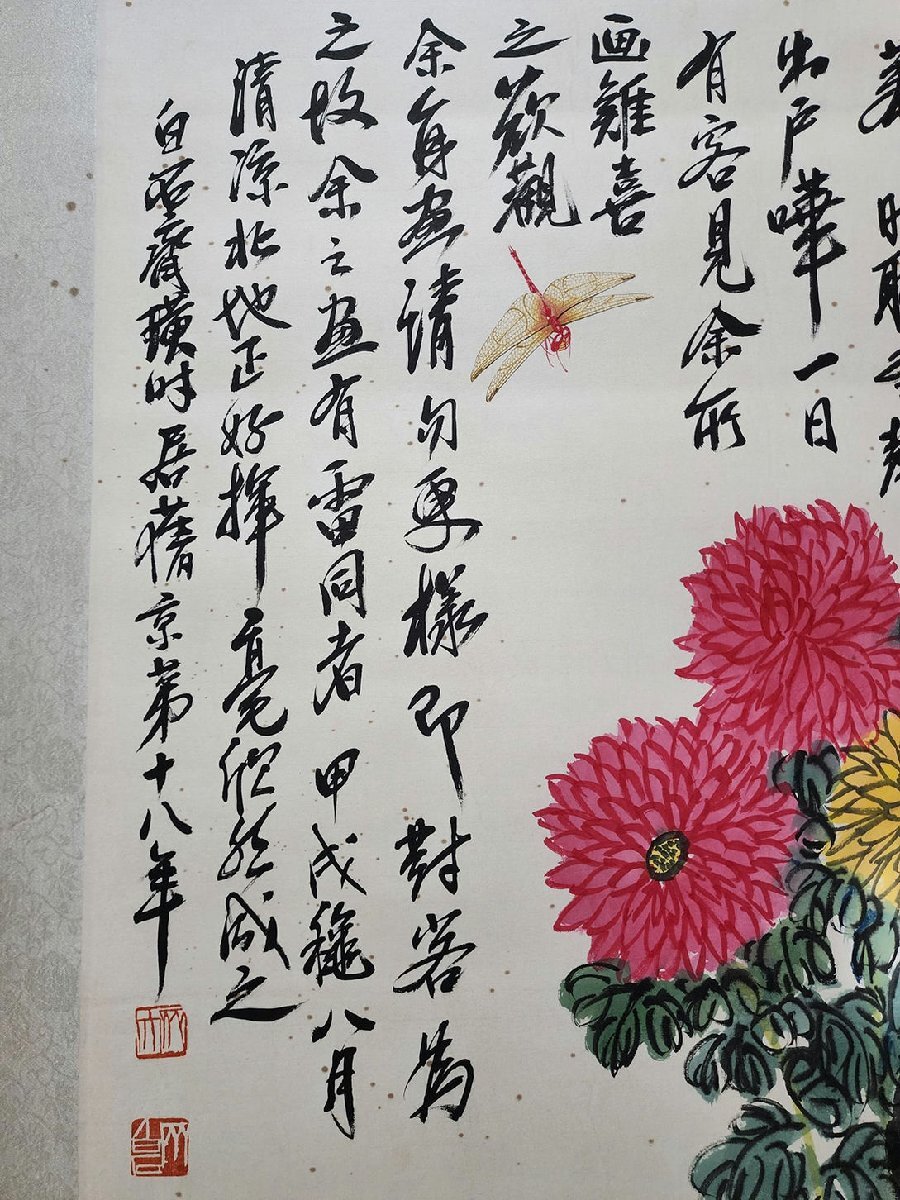 出戶嘩一日
有客見余所
画雞喜
之欲觀
余身畫請勿更樣即對客為
之故余之畫有雷同者甲戌龝八月
清涼北地正好揮毫欣然成之
白石齊璜時居舊京第十八年